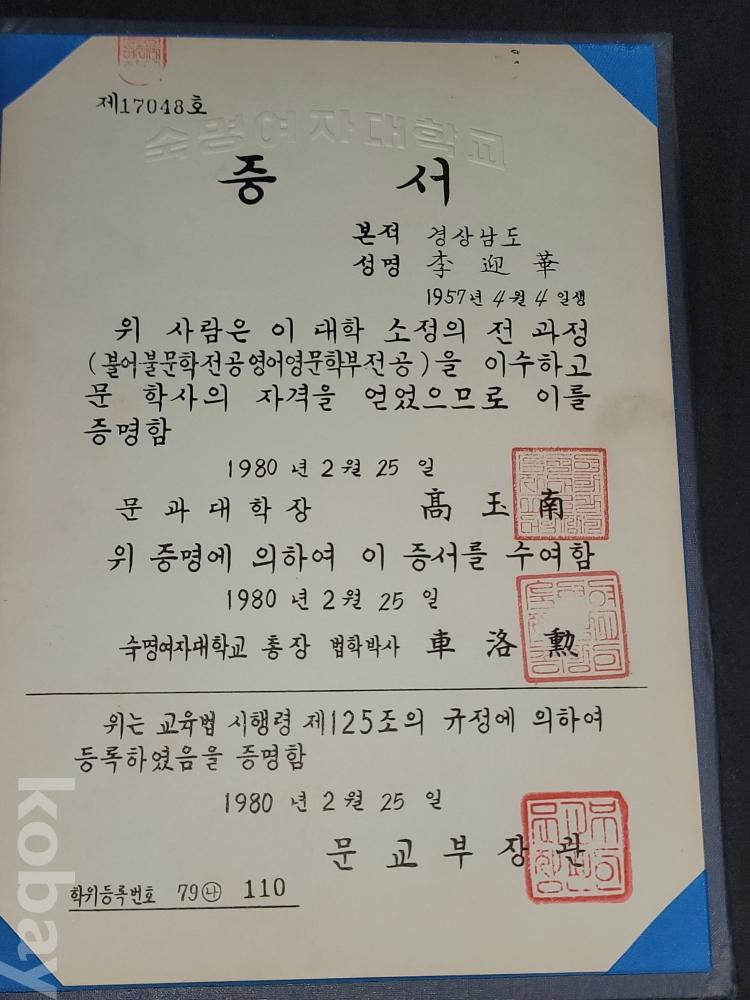 제17048호
숙명여자대학교
증 서
본적 경상남도
성명 李迎華
1957년 4월 4일생
위 사람은 이 대학 소정의 전 과정
(불어불문학전공영어영문학부전공)을 이수하고
문 학사의 자격을 얻었으므로 이를
증명함
1980 년 2월 25 일
문과대학장 高玉南
위 증명에 의하여 이 증서를 수여함
1980 년 2월 25 일
숙명여자대학교 총장 법학박사 車洛勲
위는 교육법 시행령 제125조의 규정에 의하여
등록하였음을 증명함
1980 년 2월 25 일
문교부장관
학위등록번호 79㉯ 110
kobay